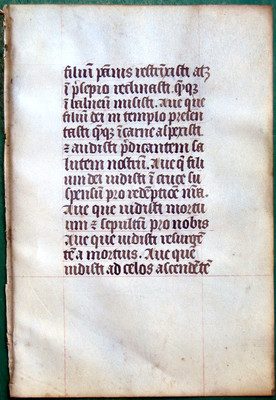 filiū pānis restrīxisti atq̄ʒ
ī p̄sepio reclinasti. q̄qʒ
ī balneū misisti. Aue que
filiū dei in templo presen
tasti q̄qʒ ī carne aspexisti
ꝛ audisti p̄dicantem sa
lutem nostrā. Aue q̄ fili
um dei uidisti ī cruce su
spensū pro redēptiōe nr̄a.
Aue que uidisti mortu
um ꝛ sepultū pro nobis
Aue que uidisti resurgē
tē a mortuis. Aue que
uidisti ad celos ascendētē